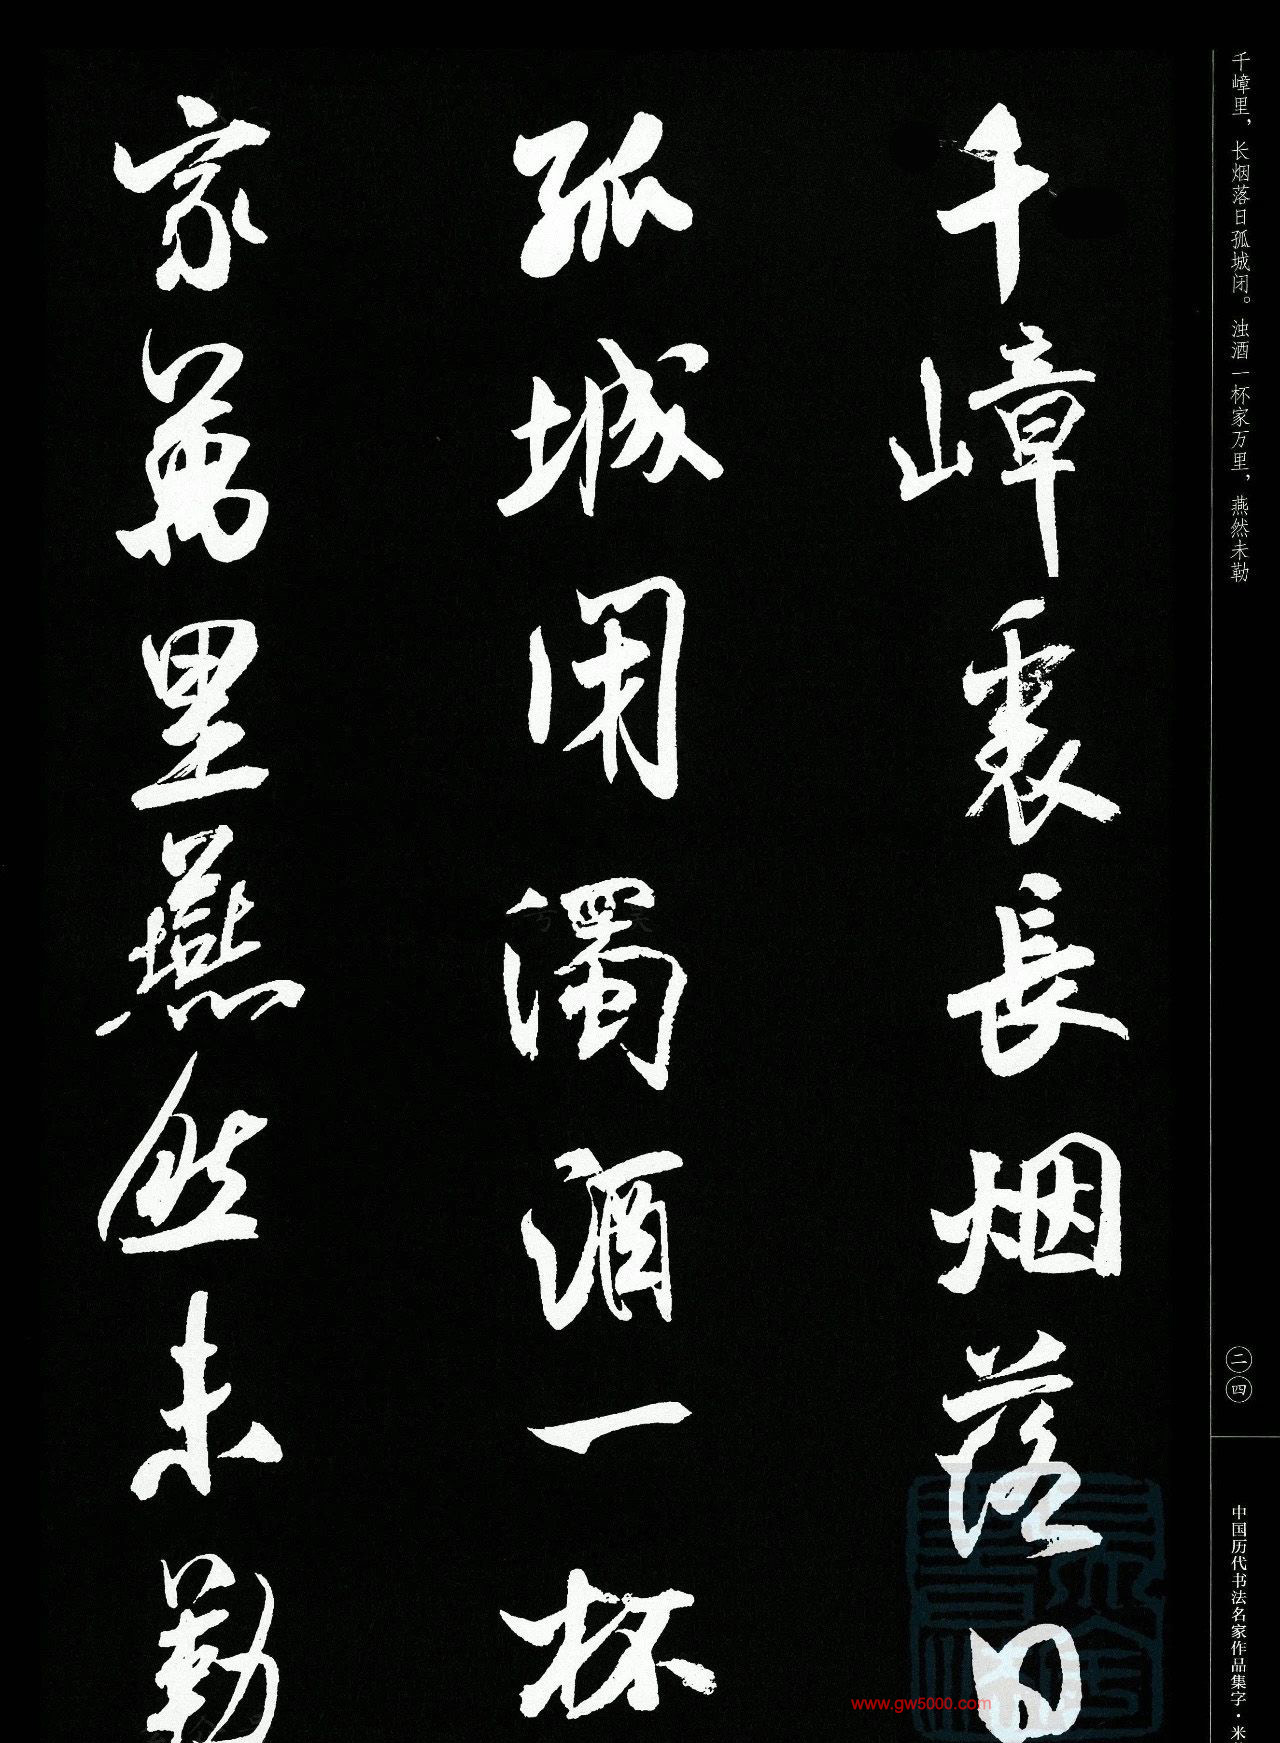 千嶂裏長烟落日
孤城闭濁酒一杯
家萬里燕然未勒
千嶂里，长烟落日孤城闭。浊酒一杯家万里，燕然未勒
二四
中国历代书法名家作品集字·米
www.gw5000.com